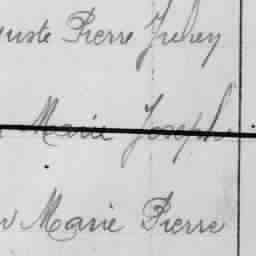 uste Pierre Juhey
Marie Joseph
Marie Pierre